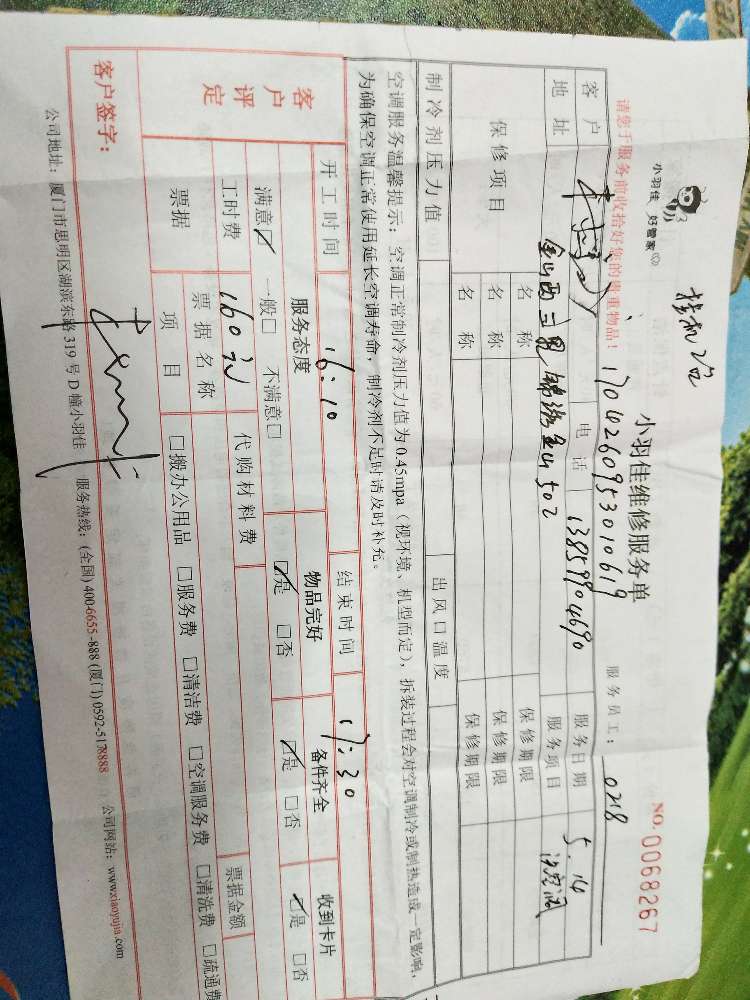 挂机2台
小羽佳 好管家
小羽佳维修服务单
NO. 0068267
1704260953010619
服务员工: 0218
请您于服务前收拾好您的贵重物品!
客户 电话 13859904690 服务日期 5.14
地址 金山西三里锦绣金山502 服务项目 洗空调
保修项目 名称 保修期限
名称 保修期限
名称 保修期限
制冷剂压力值 出风口温度
空调服务温馨提示: 空调正常制冷剂压力值为0.45mpa (视环境、机型而定), 拆装过程会对空调制冷或制热造成一定影响,
为确保空调正常使用延长空调寿命, 制冷剂不足时请及时补充。
开工时间 16:10 结束时间 17:30
客户评定 服务态度 物品完好 备件齐全 收到卡片
满意☑ 一般□ 不满意□ ☑是 □否 ☑是 □否 ☑是 □否
工时费 160元 代购材料费
票据 票据名称 票据金额
项目 □搬办公用品 □服务费 □清洁费 □空调服务费 □清洗费 □疏通费
客户签字:
公司地址: 厦门市思明区湖滨东路319号D幢小羽佳 服务热线: (全国) 400-6655-888 (厦门) 0592-5178888 公司网站: www.xiaoyujia.com